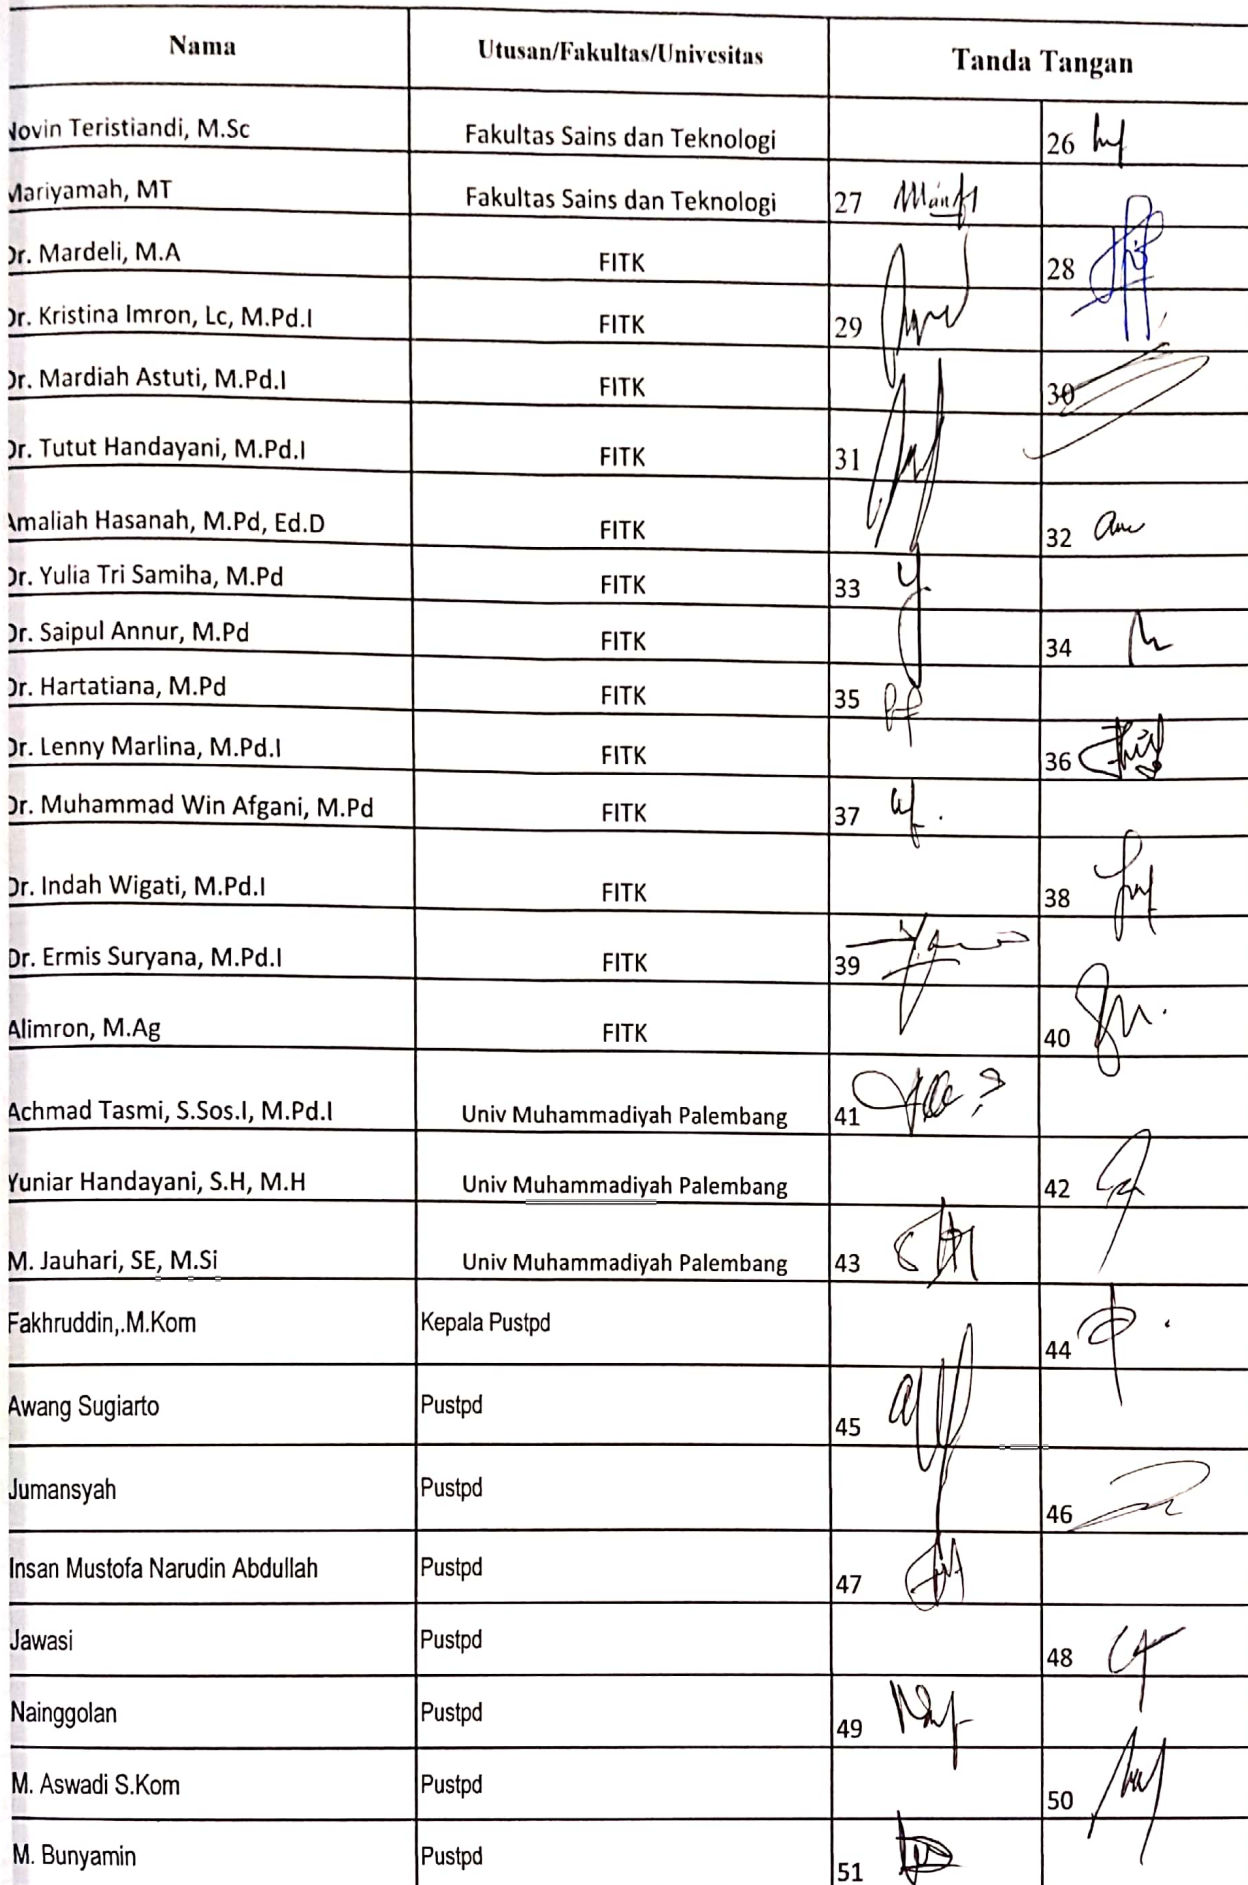 Nama Utusan/Fakultas/Univesitas Tanda Tangan
Novin Teristiandi, M.Sc Fakultas Sains dan Teknologi 26
Mariyamah, MT Fakultas Sains dan Teknologi 27
Dr. Mardeli, M.A FITK 28
Dr. Kristina Imron, Lc, M.Pd.I FITK 29
Dr. Mardiah Astuti, M.Pd.I FITK 30
Dr. Tutut Handayani, M.Pd.I FITK 31
Amaliah Hasanah, M.Pd, Ed.D FITK 32
Dr. Yulia Tri Samiha, M.Pd FITK 33
Dr. Saipul Annur, M.Pd FITK 34
Dr. Hartatiana, M.Pd FITK 35
Dr. Lenny Marlina, M.Pd.I FITK 36
Dr. Muhammad Win Afgani, M.Pd FITK 37
Dr. Indah Wigati, M.Pd.I FITK 38
Dr. Ermis Suryana, M.Pd.I FITK 39
Alimron, M.Ag FITK 40
Achmad Tasmi, S.Sos.I, M.Pd.I Univ Muhammadiyah Palembang 41
Yuniar Handayani, S.H, M.H Univ Muhammadiyah Palembang 42
M. Jauhari, SE, M.Si Univ Muhammadiyah Palembang 43
Fakhruddin,.M.Kom Kepala Pustpd 44
Awang Sugiarto Pustpd 45
Jumansyah Pustpd 46
Insan Mustofa Narudin Abdullah Pustpd 47
Jawasi Pustpd 48
Nainggolan Pustpd 49
M. Aswadi S.Kom Pustpd 50
M. Bunyamin Pustpd 51